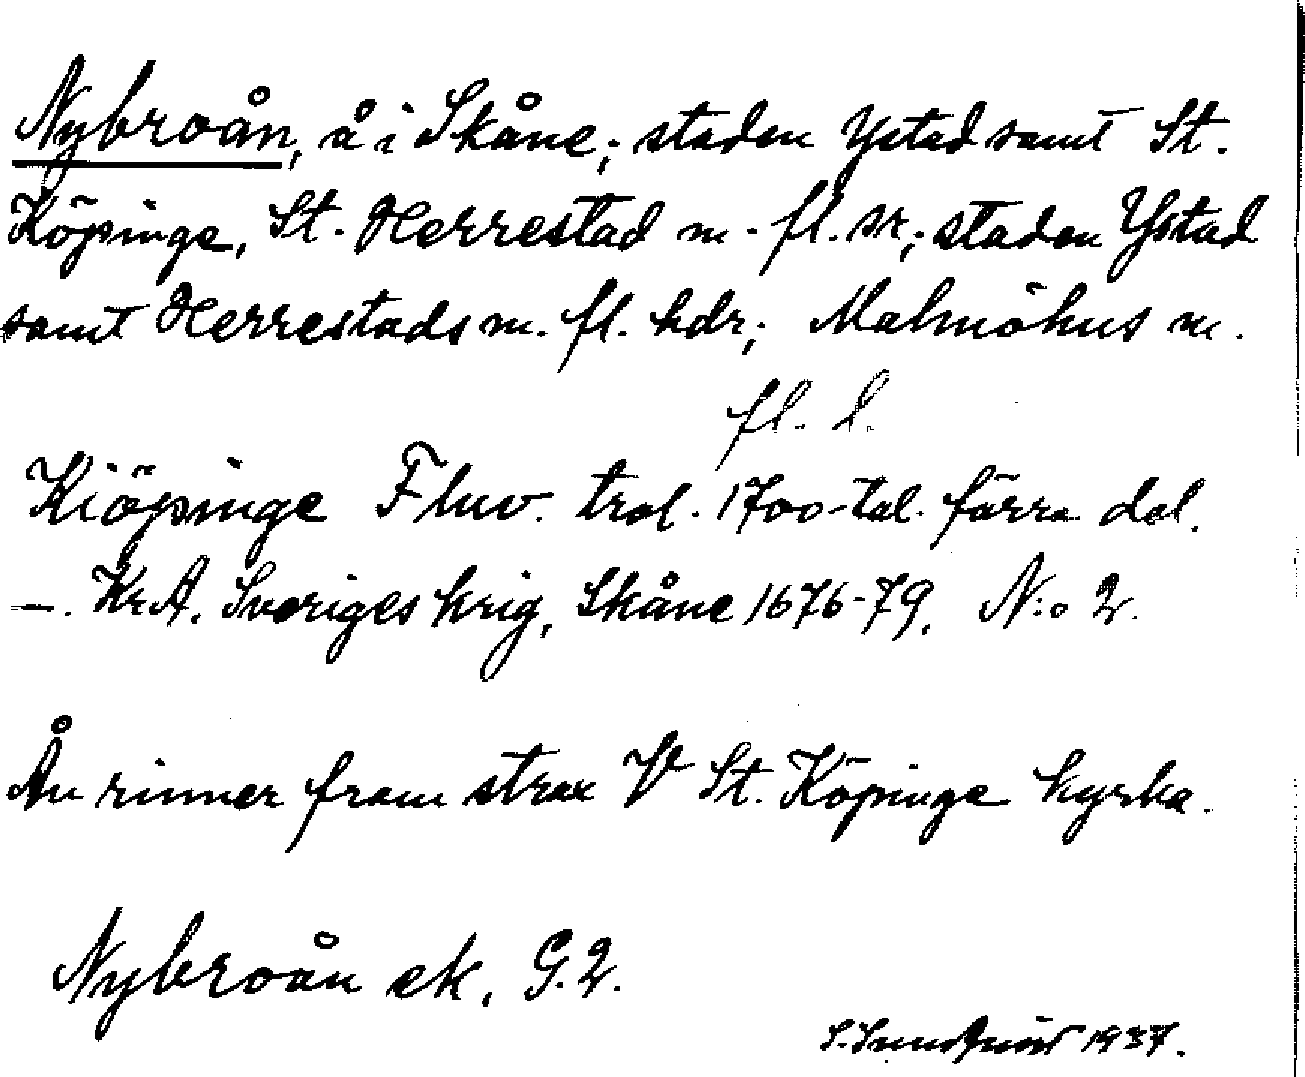 Nybroån, å i Skåne; staden Ystad samt St.
Köpinge, St. Herrestad m. fl. sr; staden Ystad
samt Herrestads m. fl. hdr; Malmöhus m.
fl. l.
Kiöpinge Fluv. trol. 1700-tal. förra del.
—. KrA. Sveriges krig, Skåne 1676-79. N:o 2.
Ån rinner fram strax V St. Köpinge kyrka.
Nybroån ek. G.2.
S. 1937.